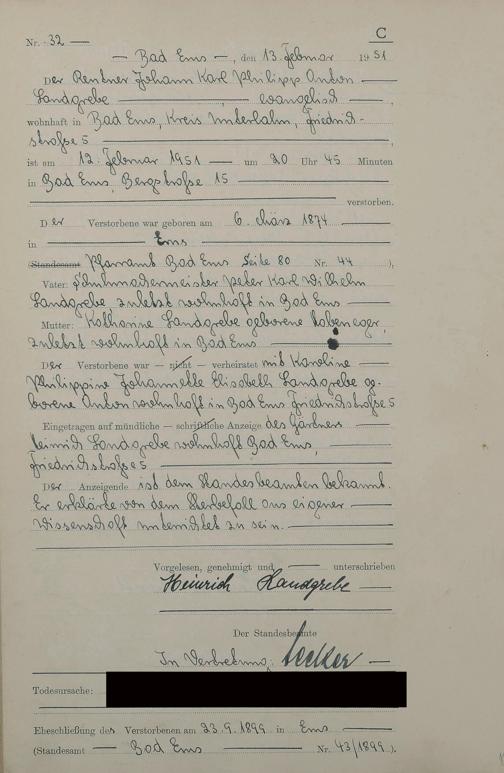 C
Nr. 32 —
— Bad Ems —, den 13. Februar 1951
Der Rentner Johann Karl Philipp Anton —
Landgrebe —, — evangelisch —,
wohnhaft in Bad Ems, Kreis Unterlahn, Friedrich-
straße 5 —,
ist am 12. Februar 1951 — um 20 Uhr 45 Minuten
in Bad Ems, Bergstraße 15 —
— verstorben.
Der Verstorbene war geboren am 6. März 1874 —
in — Ems —
(Standesamt Pfarramt Bad Ems Seite 80 Nr. 44 ),
Vater: Schuhmachermeister Peter Karl Wilhelm
Landgrebe zuletzt wohnhaft in Bad Ems —
Mutter: Katharine Landgrebe geborene
zuletzt wohnhaft in Bad Ems —
Der Verstorbene war — nicht — verheiratet mit Karoline —
Philippine Johannette Elisabeth Landgrebe ge-
borene Anton wohnhaft in Bad Ems Friedrichstraße 5
Eingetragen auf mündliche — schriftliche Anzeige des Gärtners —
Heinrich Landgrebe wohnhaft Bad Ems,
Friedrichstraße 5 —
Der Anzeigende ist dem Standesbeamten bekannt.
Er erklärte von dem Sterbefall aus eigener —
Wissenschaft unterrichtet zu sein. —
Vorgelesen, genehmigt und — unterschrieben
Heinrich Landgrebe —
Der Standesbeamte
In Vertretung: —
Todesursache:
Eheschließung des Verstorbenen am 23.9.1899 in Ems —
(Standesamt — Bad Ems — Nr. 43/1899 ).